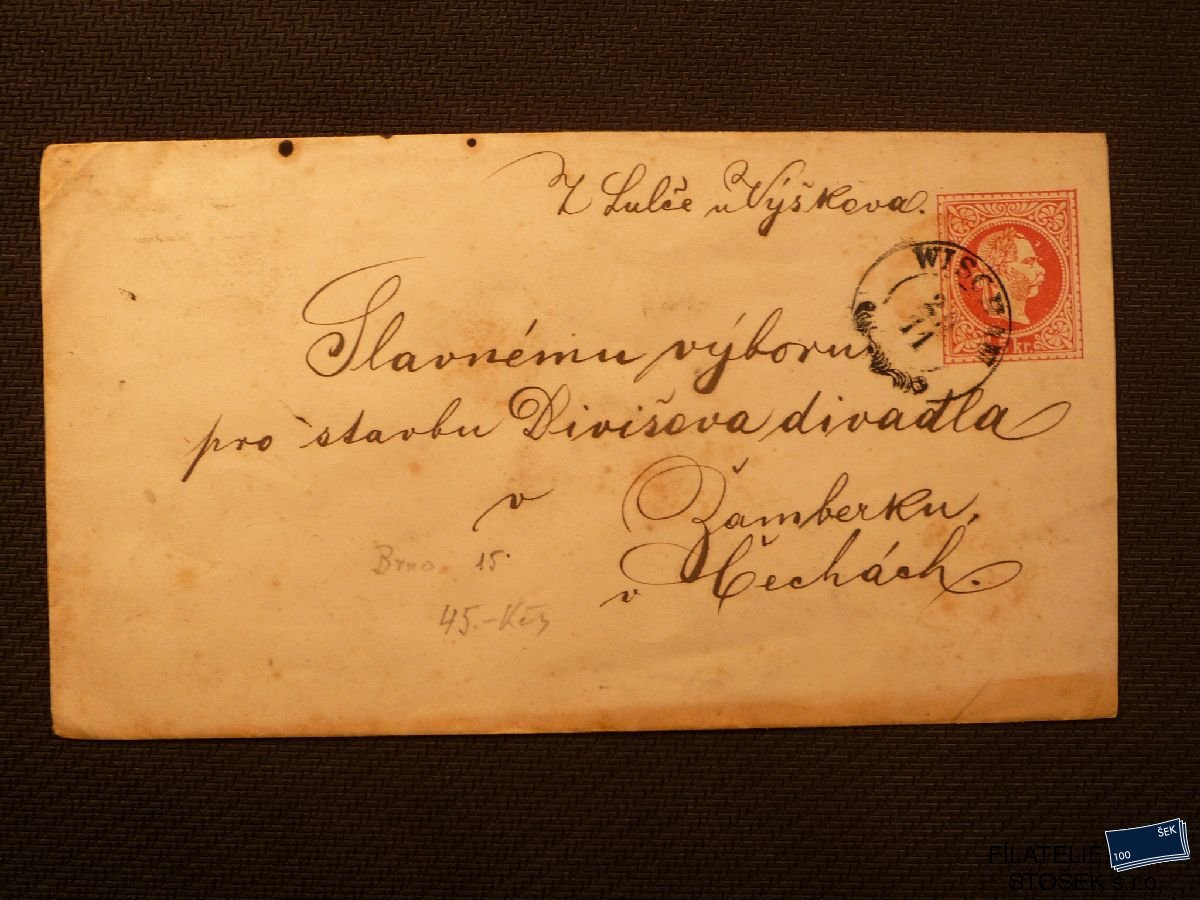 Z Lulče u Výškova.
WISCHAU
11
kr.
Slavnému výboru
pro stavbu Divišova divadla
v Žamberku,
v Čechách.
Brno 15.
45.- Kčs
ŠEK
100
FILATELIE
STOŠEK s.r.o.